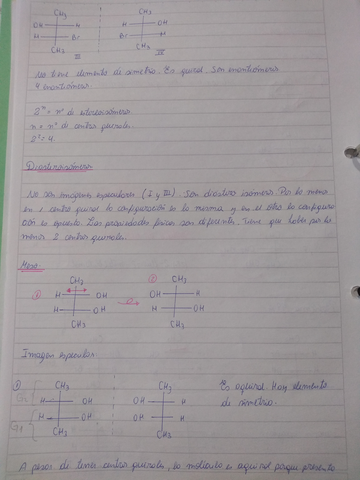 CH₃ CH₃
OH H H OH
H Br Br H
CH₃ CH₃
III IV
No tiene elemento de simetría. Es quiral. Son enantiómeros
4 enantiómeros
2ⁿ = nº de estereoisómeros
n = nº de centros quirales
2² = 4
Diastereoisómeros
No son imágenes especulares (I y III). Son diastereoisómeros. Por lo menos
en 1 centro quiral la configuración es la misma y en el otro la configura
ción es opuesta. Las propiedades físicas son diferentes. Tiene que haber por lo
menos 2 centros quirales.
Meso
CH₃ CH₃
H OH OH H
H OH H OH
CH₃ CH₃
Imagen especular
CH₃ CH₃
H OH OH H
H OH OH H
CH₃ CH₃
Es aquiral. Hay elemento
de simetría.
A pesar de tener centros quirales, la molécula es aquiral porque presenta